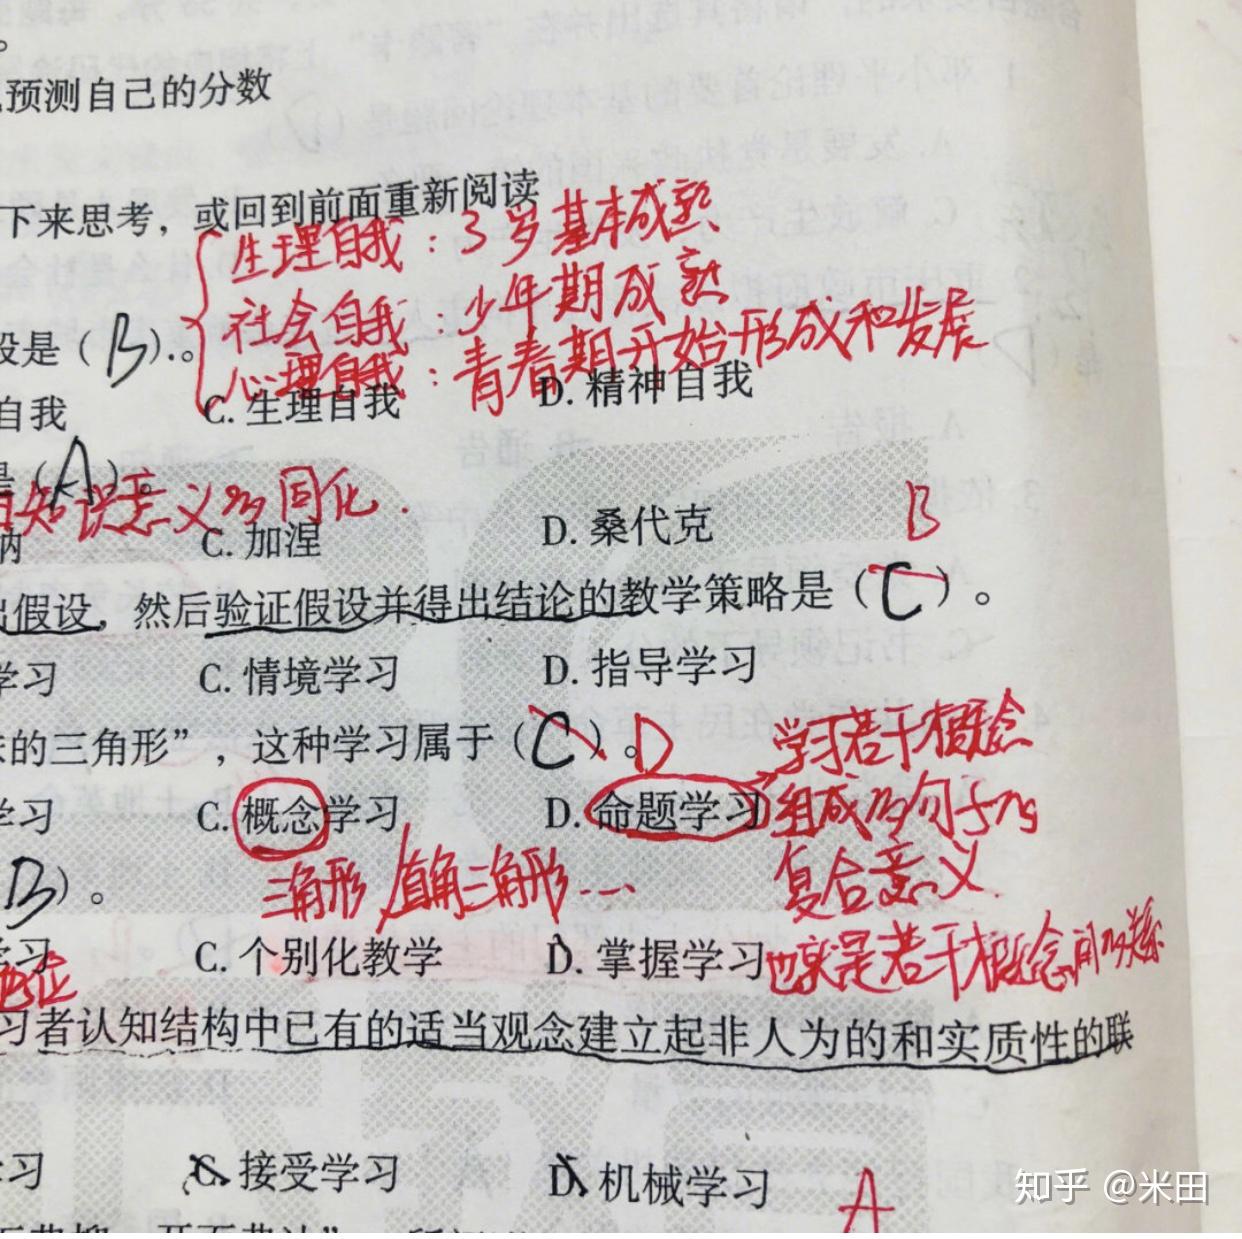 。
预测自己的分数
下来思考，或回到前面重新阅读
生理自我：3岁基本成熟
社会自我：少年期成熟
心理自我：青春期开始形成和发展
段是（B）。
自我 C. 生理自我 D. 精神自我
是（A）。
知识意义的同化.
纳 C. 加涅 D. 桑代克
B
出假设，然后验证假设并得出结论的教学策略是（C）。
学习 C. 情境学习 D. 指导学习
的三角形”，这种学习属于（C）。D
学习若干概念
学习 C. 概念学习 D. 命题学习 组成的句子的
复合意义
三角形，直角三角形……
B）。
学习 C. 个别化教学 D. 掌握学习 也就是若干概念间的关系
习者认知结构中已有的适当观念建立起非人为的和实质性的联
习 C. 接受学习 D. 机械学习
A
知乎 @米田